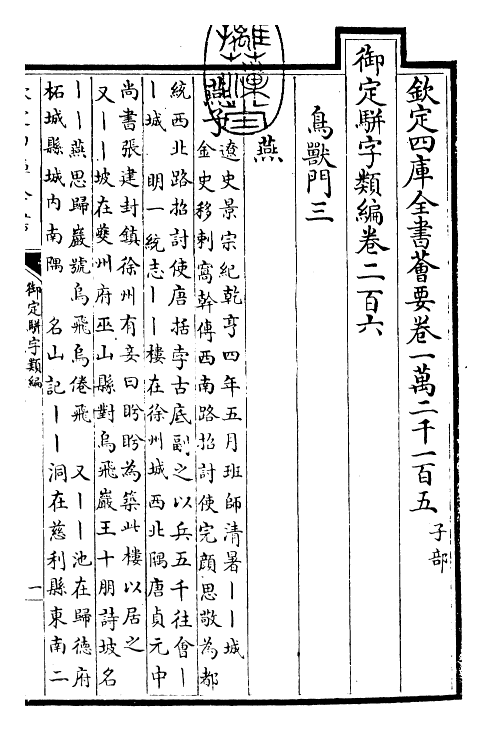 欽定四庫全書薈要卷一萬二千一百五 子部
御定駢字類編卷二百六
鳥獸門三
燕
燕子 遼史景宗紀乾亨四年五月班師清暑丨丨城
金史移剌窩斡傳西南路招討使完顏思敬為都
統西北路招討使唐括孛古底副之以兵五千往會丨
丨城 明一統志丨丨樓在徐州城西北隅唐貞元中
尚書張建封鎮徐州有妾曰盼盼為築此樓以居之
又丨丨坡在夔州府巫山縣對烏飛巖王十朋詩坡名
丨丨燕思歸巖號烏飛烏倦飛 又丨丨池在歸德府
柘城縣城內南隅 名山記丨丨洞在慈利縣東南二
御定駢字類編
一